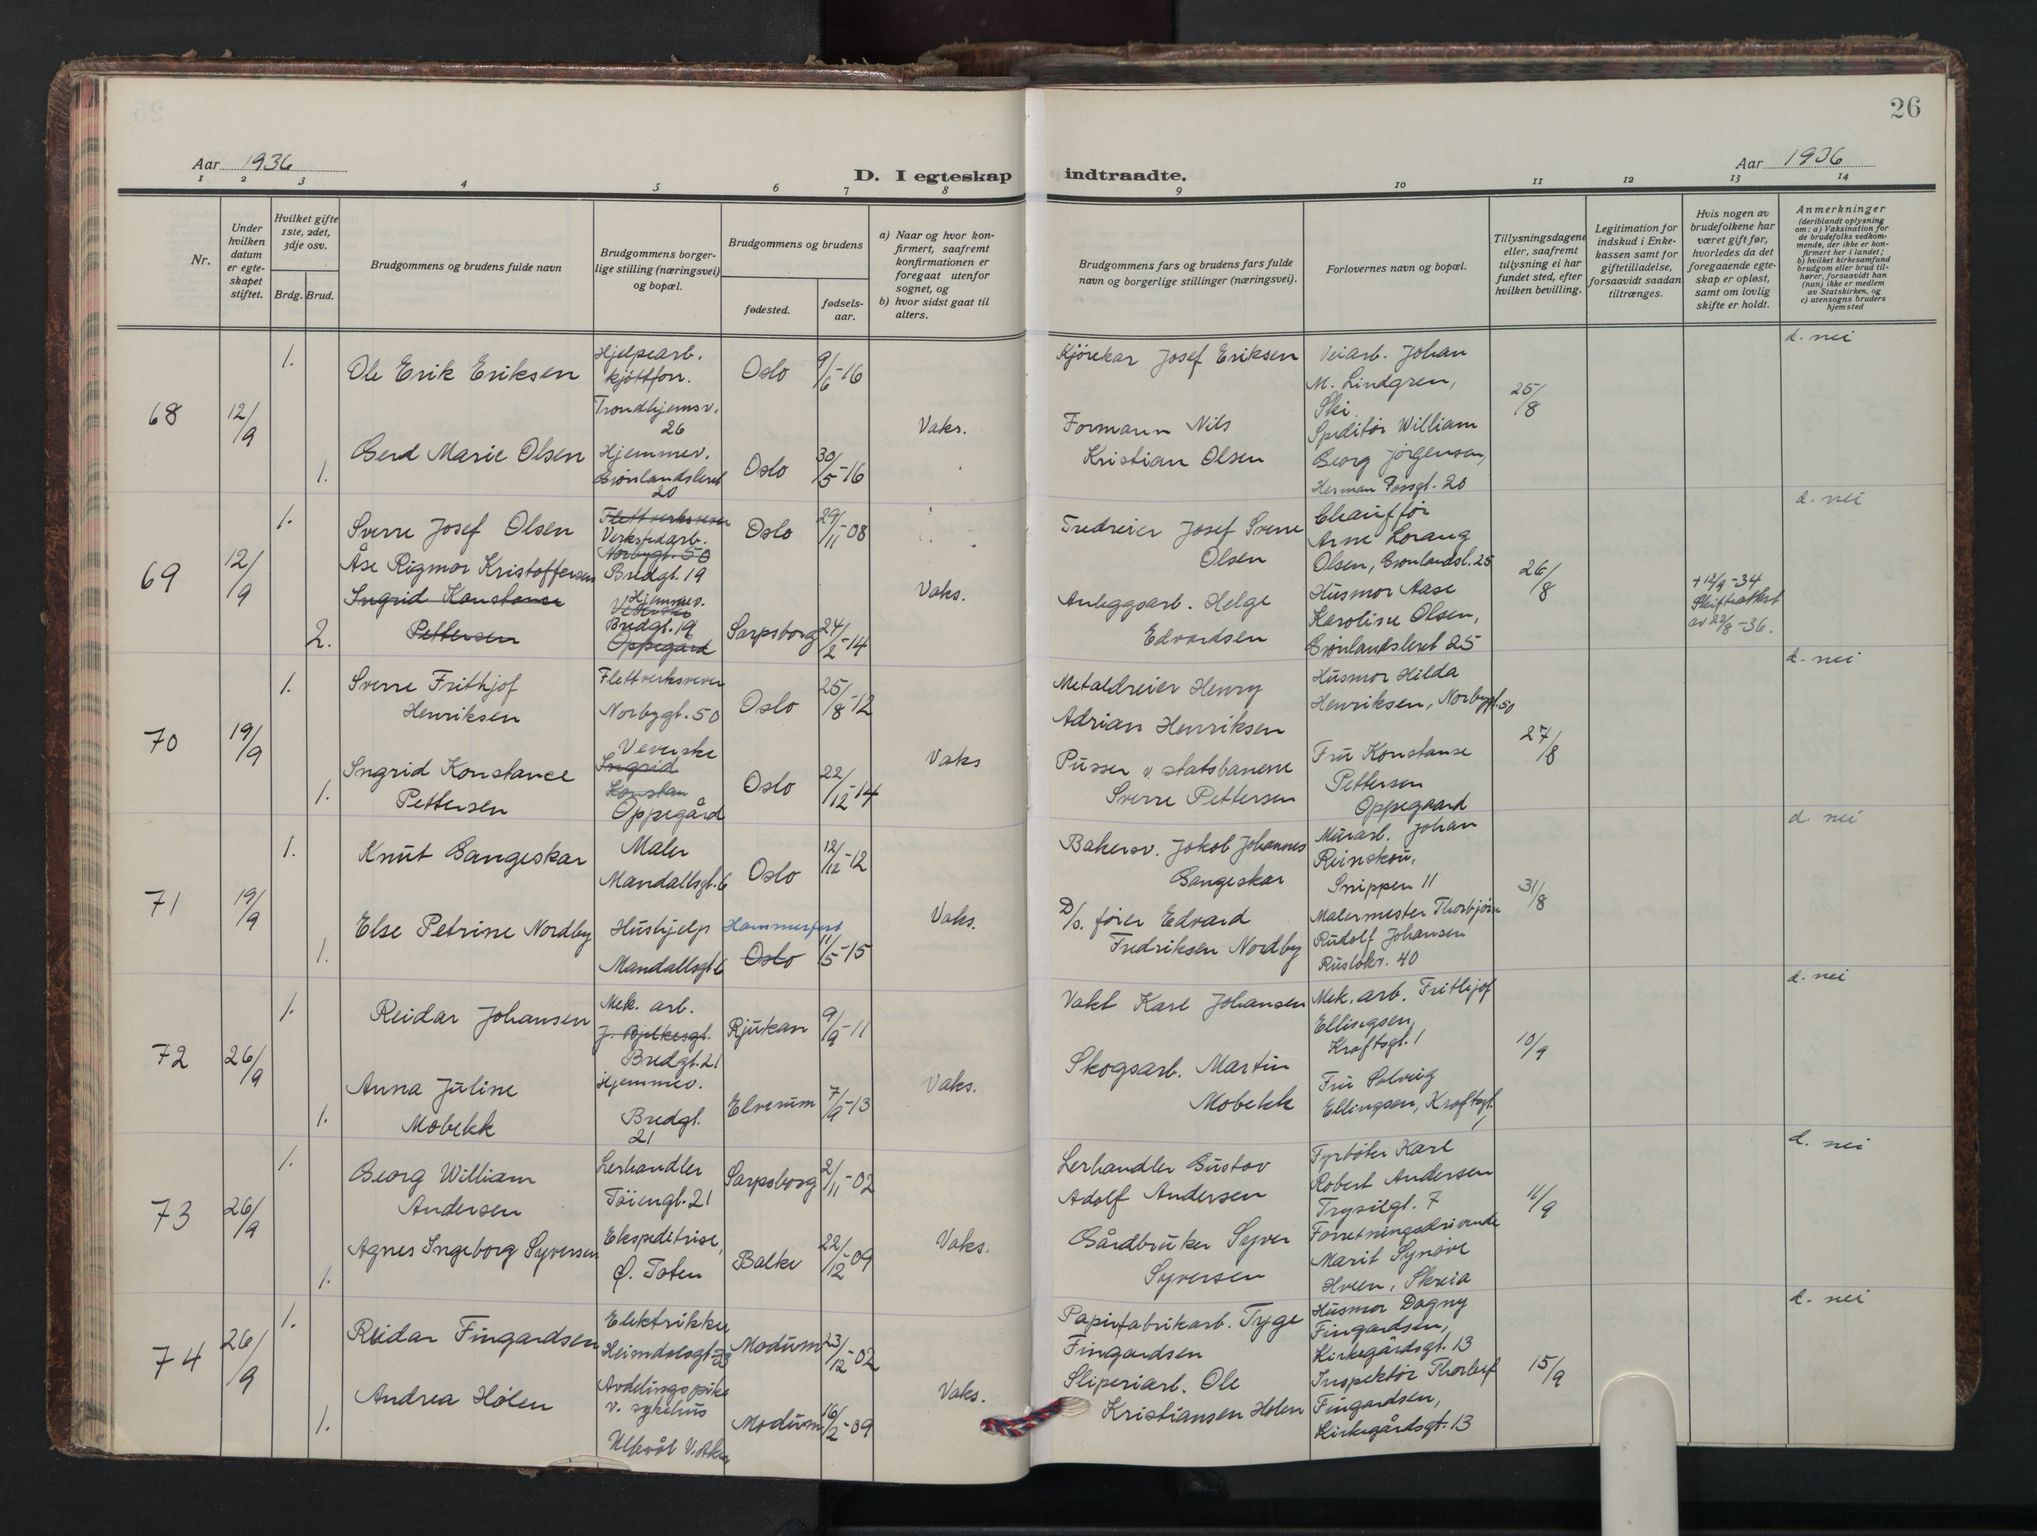 26
Aar 1936
D. I egteskap indtraadte.
Aar 1936
1 2 3 4 5 6 7 8 9 10 11 12 13 14
Nr.
Under
hvilken
datum
er egte-
skapet
stiftet.
Hvilket gifte
1ste, 2det,
3dje osv.
Brdg. Brud.
Brudgommens og brudens fulde navn
Brudgommens borger-
lige stilling (næringsvei)
og bopæl.
Brudgommens og brudens
fødested.
fødsels-
aar.
a) Naar og hvor kon-
firmert, saafremt
konfirmationen er
foregaat utenfor
sognet, og
b) hvor sidst gaat til
alters.
Brudgommens fars og brudens fars fulde
navn og borgerlige stillinger (næringsvei).
Forlovernes navn og bopæl.
Tillysningsdagene
eller, saafremt
tillysning ei har
fundet sted, efter
hvilken bevilling.
Legitimation for
indskud i Enke-
kassen samt for
giftetilladelse,
forsaavidt saadan
tiltrænges.
Hvis nogen av
brudefolkene har
været gift før,
hvorledes da det
foregaaende egte-
skap er opløst,
samt om lovlig
skifte er holdt.
Anmerkninger
(deriblandt oplysning
om: a) Vaksination for
de brudefolks vedkom-
mende, der ikke er kon-
firmert her i landet;
b) hvilket kirkesamfund
brudgom eller brud til-
hører, forsaavidt han
(hun) ikke er medlem
av Statskirken, og
c) utensogns bruders
hjemsted
68
12/9
1.
Ole Erik Eriksen
Hjelpearb.
kjøttforr.
Trondhjemsv.
26
Oslo
9/6-16
Vaks.
Kjørekar Josef Eriksen
Veiarb. Johan
M. Lindgren,
Ski.
25/8
d. nei
1.
Gerd Marie Olsen
Hjemmev.
Grønlandsleret
20
Oslo
30/5-16
Formann Nils
Kristian Olsen
Speditør William
Georg Jørgensen,
Herman Fossgt. 20
69
12/9
1.
Sverre Josef Olsen
Flettverksvever
Verkstedarb.
Norbygt. 50
Bredgt. 19
Oslo
29/11-08
Vaks.
Tredreier Josef Sverre
Olsen
Chauffør
Arne Lorang
Olsen, Grønlandsl. 25
26/8
+ 12/9-34
Skifteattest
av 22/8-36.
d. nei
2.
Åse Rigmor Kristoffersen
Ingrid Konstance
Pettersen
Hjemmev.
Veverske
Bredgt. 19
Oppegård
Sarpsborg
24/2-14
Anleggsarb. Helge
Edvardsen
Husmor Aase
Karoline Olsen,
Grønlandsleret 25
70
19/9
1.
Sverre Frithjof
Henriksen
Flettverksvever
Norbygt. 50
Oslo
25/8-12
Vaks
Metaldreier Henry
Adrian Henriksen
Husmor Hilda
Henriksen, Norbygt. 50
27/8
d. nei
1.
Ingrid Konstance
Pettersen
Veverske
Ingrid
Konstan
Oppegård
Oslo
22/12-14
Pusser v. statsbanene
Sverre Pettersen
Fru Konstanse
Pettersen
Oppegaard
71
19/9
1.
Knut Gangeskar
Maler
Mandallsgt. 6
Oslo
12/12-12
Vaks.
Bakersv. Jakob Johannes
Gangeskar
Murarb. Johan
Reinskou,
Snippen 11
31/8
d. nei
1.
Else Petrine Nordby
Hushjelp
Mandallsgt 6
Hammerfest
Oslo
11/5-15
D/s. fører Edvard
Fredriksen Nordby
Malermester Thorbjørn
Rudolf Johansen
Ruseløkv. 40
72
26/9
1.
Reidar Johansen
Mek. arb.
J. Bjelkesgt.
Bredgt. 21
Rjukan
9/9-11
Vaks.
Vakt Karl Johansen
Mek. arb. Frithjof
Ellingsen,
Kraftsgt. 1
10/9
d. nei
1.
Anna Juline
Mobekk
Hjemmev.
Bredgt.
21
Elverum
7/9-13
Skogsarb. Martin
Mobekk
Fru Solveig
Ellingsen, Kraftsgt.
1
73
26/9
1.
Georg William
Andersen
Lerhandler
Tøiengt. 21
Sarpsborg
2/11-02
Vaks.
Lerhandler Gustav
Adolf Andersen
Fyrbøter Karl
Robert Andersen
Trysilgt. 7
11/9
d. nei
1.
Agnes Ingeborg Syversen
Ekspeditrise,
Ø. Toten
Balke
22/12-09
Gårdbruker Syver
Syversen
Forretningsdrivende
Marit Synøve
Hveen, Skreia
74
26/9
1.
Reidar Fingardsen
Elektriker
Heimdalsgt. 33
Modum
23/12-02
Vaks.
Papirfabrikarb. Tyge
Fingardsen
Husmor Dagny
Fingardsen,
Kirkegårdsgt. 13
15/9
d. nei
1.
Andrea Hølen
Avdelingspike
v. sykehus
Ullevål V. Aker
Modum
16/2-09
Sliperiarb. Ole
Kristiansen Hølen
Inspektør Thorleif
Fingardsen,
Kirkegårdsgt. 13